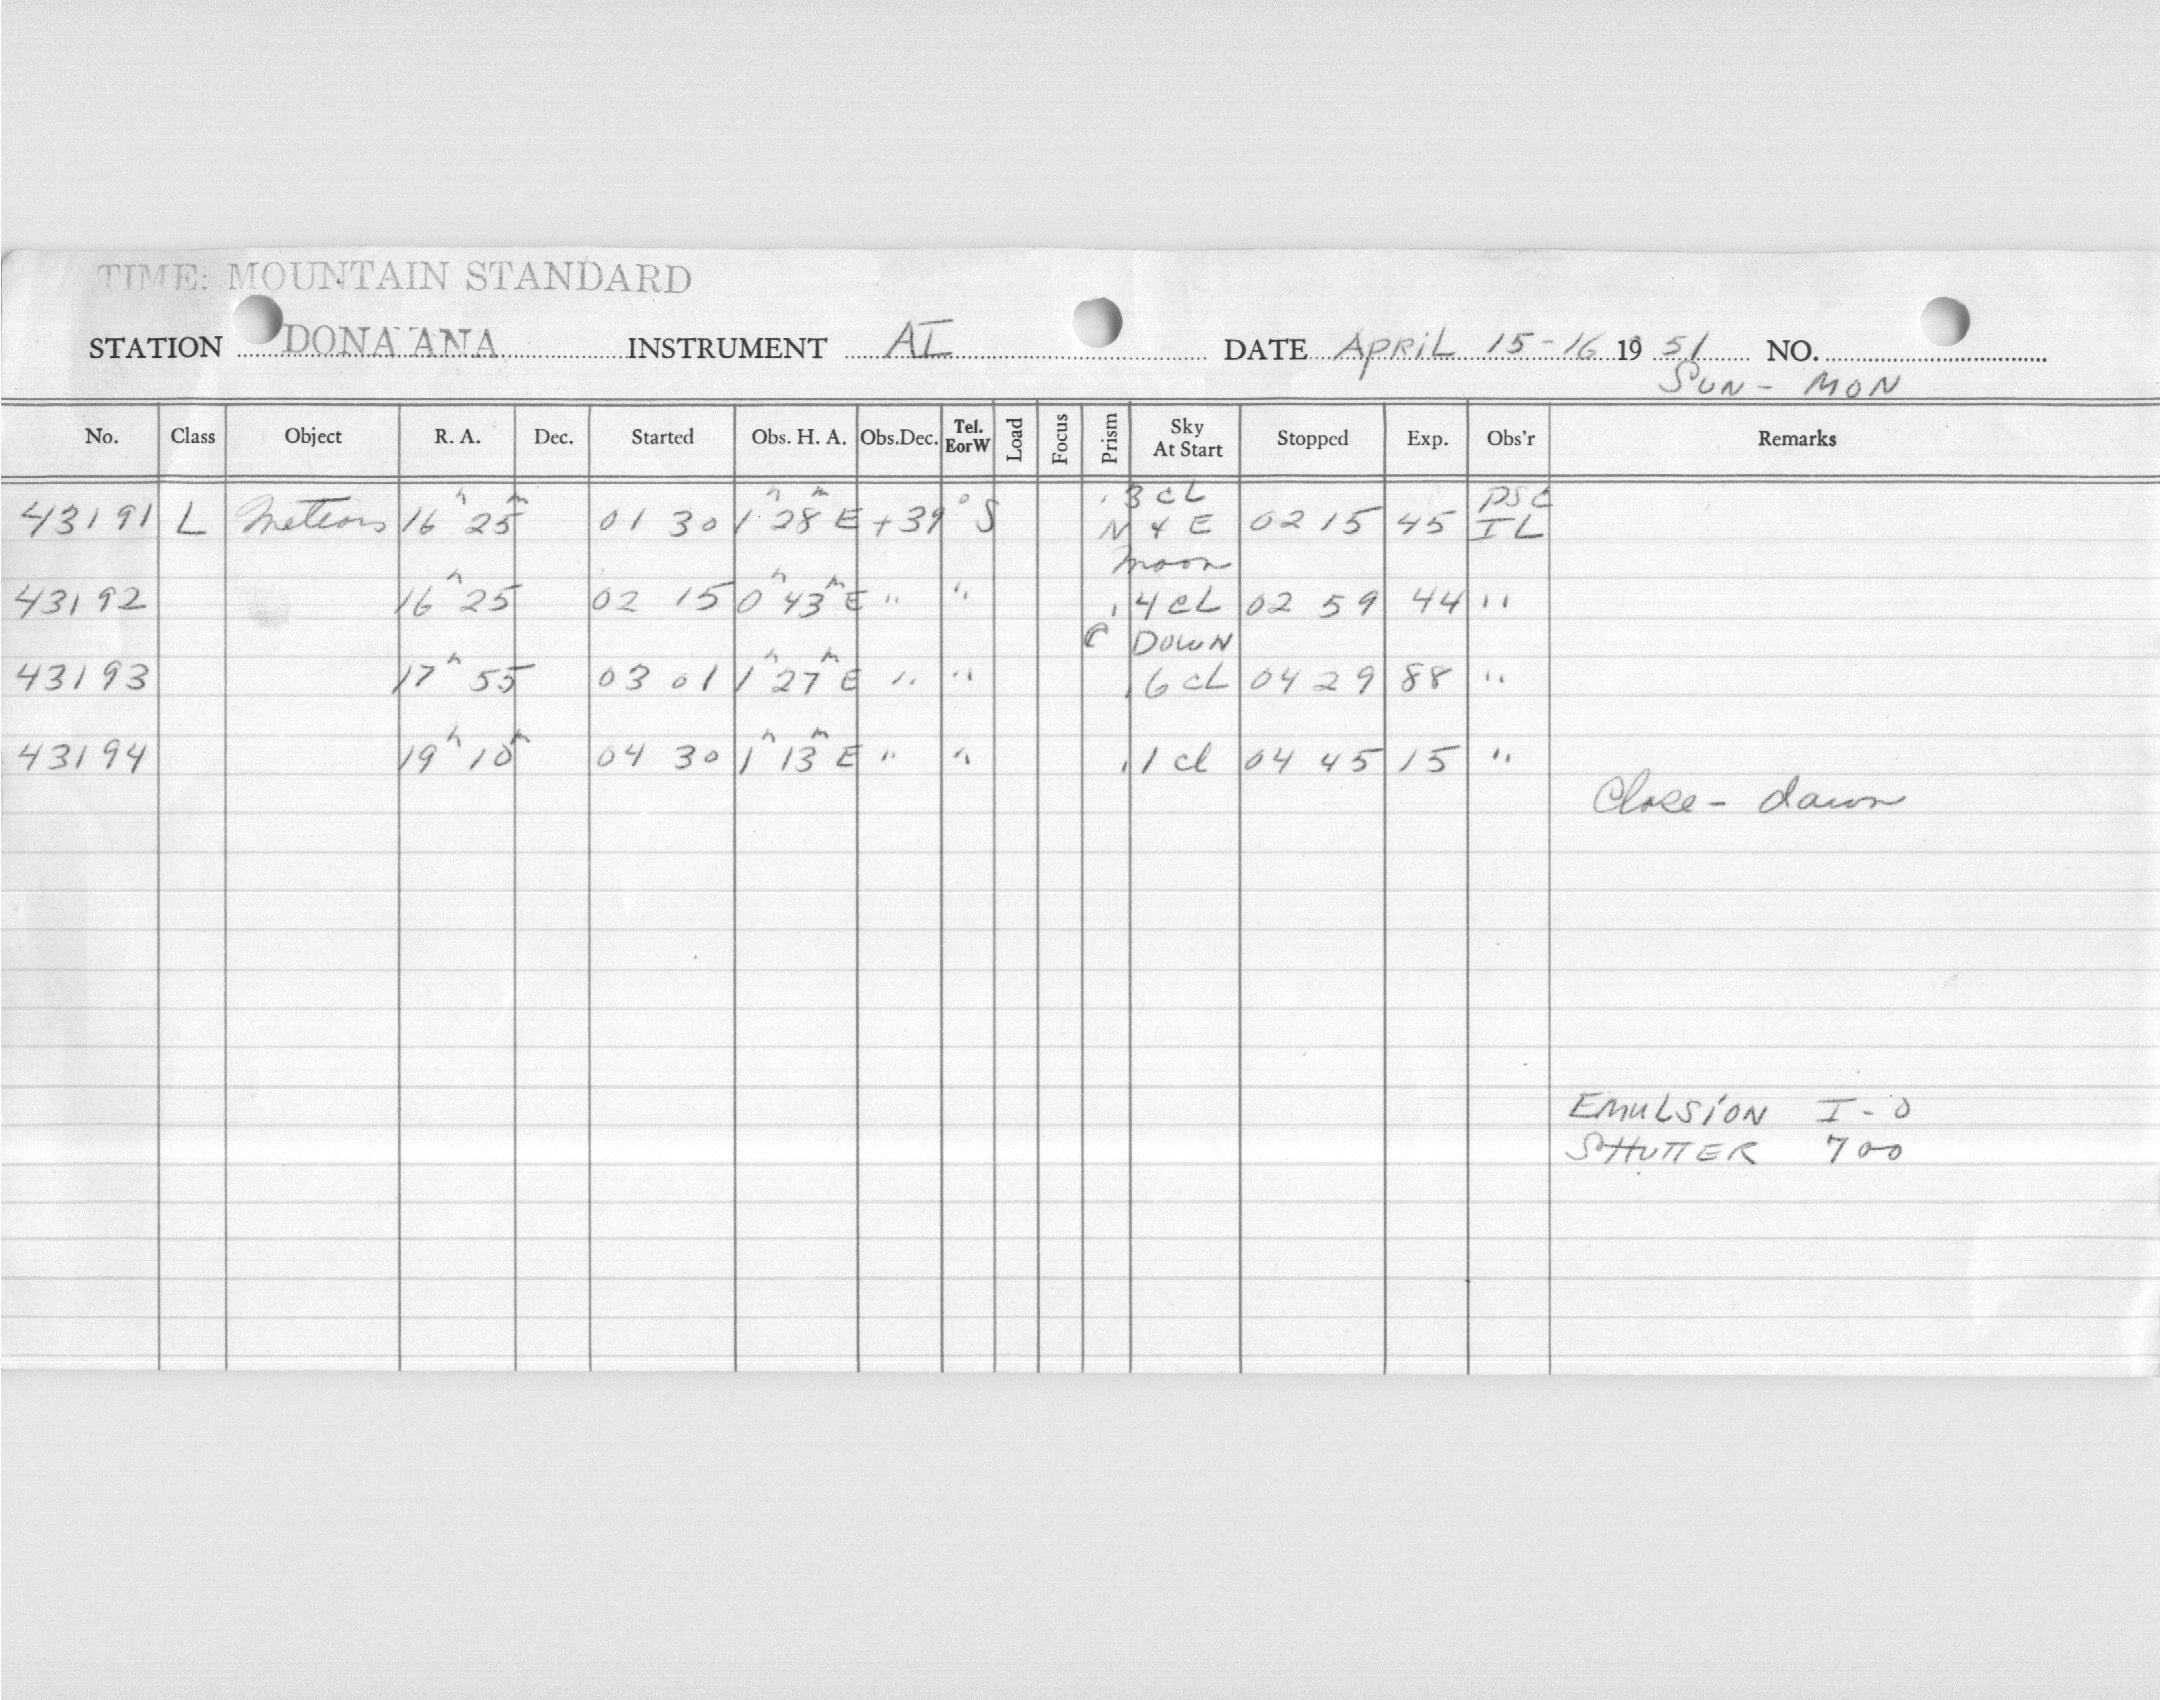 TIME: MOUNTAIN STANDARD
STATION DONA ANA INSTRUMENT AI DATE APRIL 15-16 19 51 NO.
SUN - MON
No. Class Object R. A. Dec. Started Obs. H. A. Obs.Dec. Tel. EorW Load Focus Prism Sky At Start Stopped Exp. Obs'r Remarks
43191 L Meteors 16h 25m 01 30 1h 28m E +39° S .3 CL N & E 02 15 45 PSC IL
Moon
43192 16h 25 02 15 0h 43m E " " .4 CL 02 59 44 "
DOWN
43193 17h 55 03 01 1h 27m E " " .6 CL 04 29 88 "
43194 19h 10m 04 30 1h 13m E " " .1 cl 04 45 15 "
Close - dawn
EMULSION I-O
SHUTTER 700